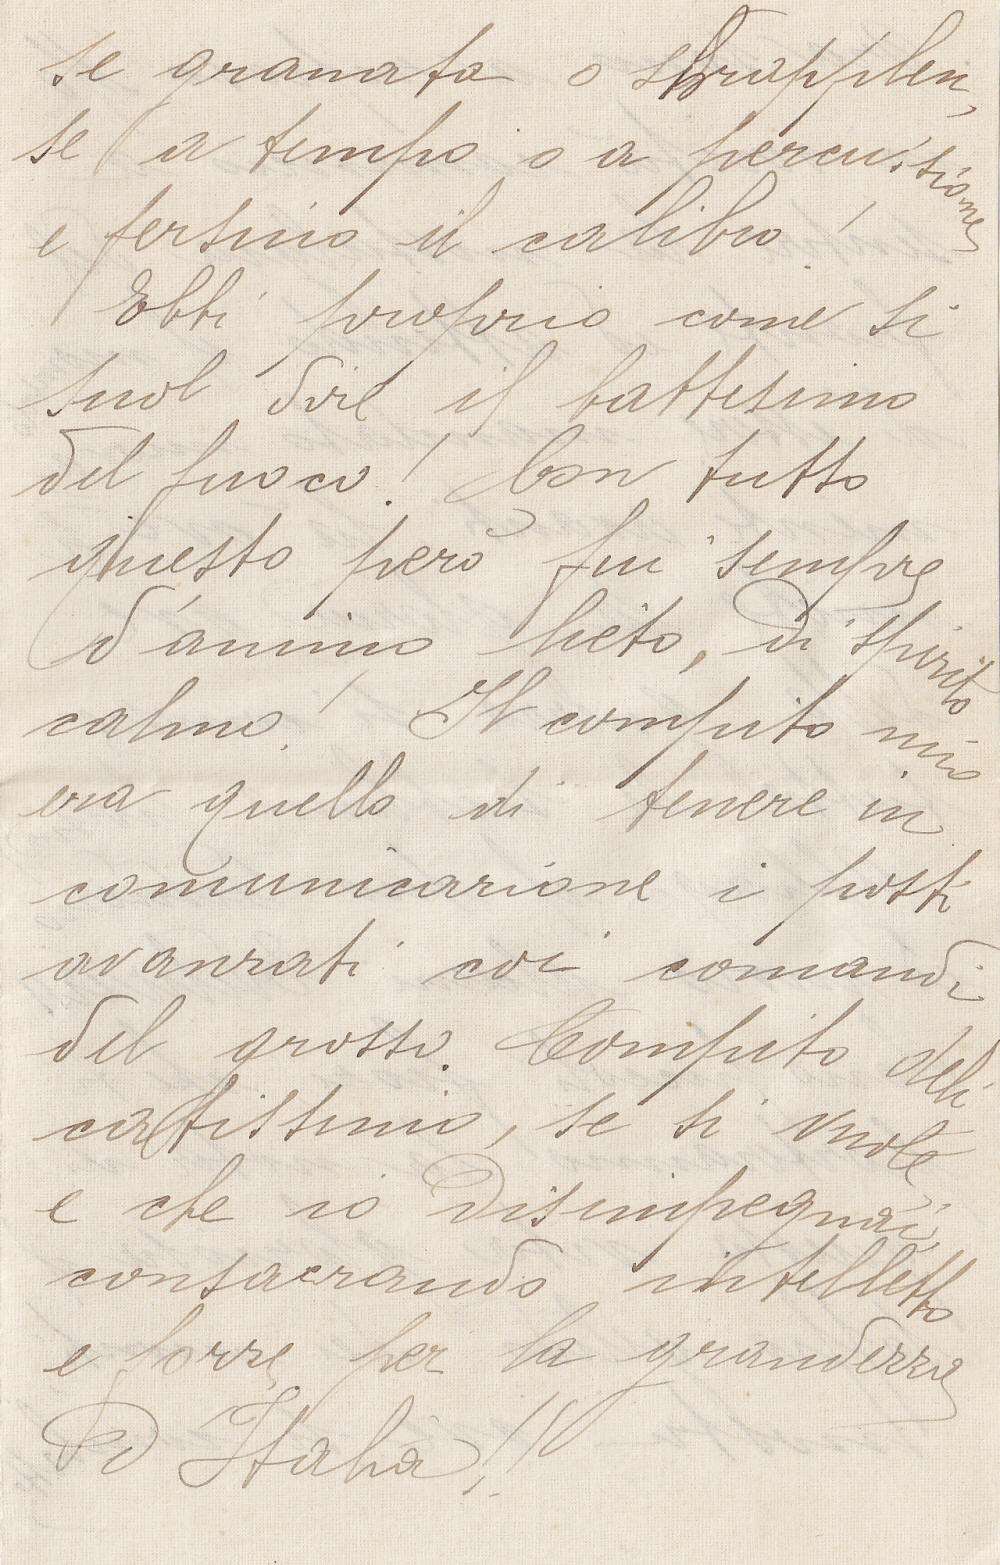 se granata o shrappilen,
se a tempo o a percussione
e persino il calibro!
Ebbi proprio come si
suol dire il battesimo
del fuoco! Con tutto
questo però fui sempre
d'animo lieto, di spirito
calmo! Il compito mio
era quello di tenere in
comunicazione i posti
avanzati coi comandi
del grosso. Compito deli
catissimo, se si vuole
e che io disimpegnai,
consacrando intelletto
e forze per la grandezza
D'Italia!!